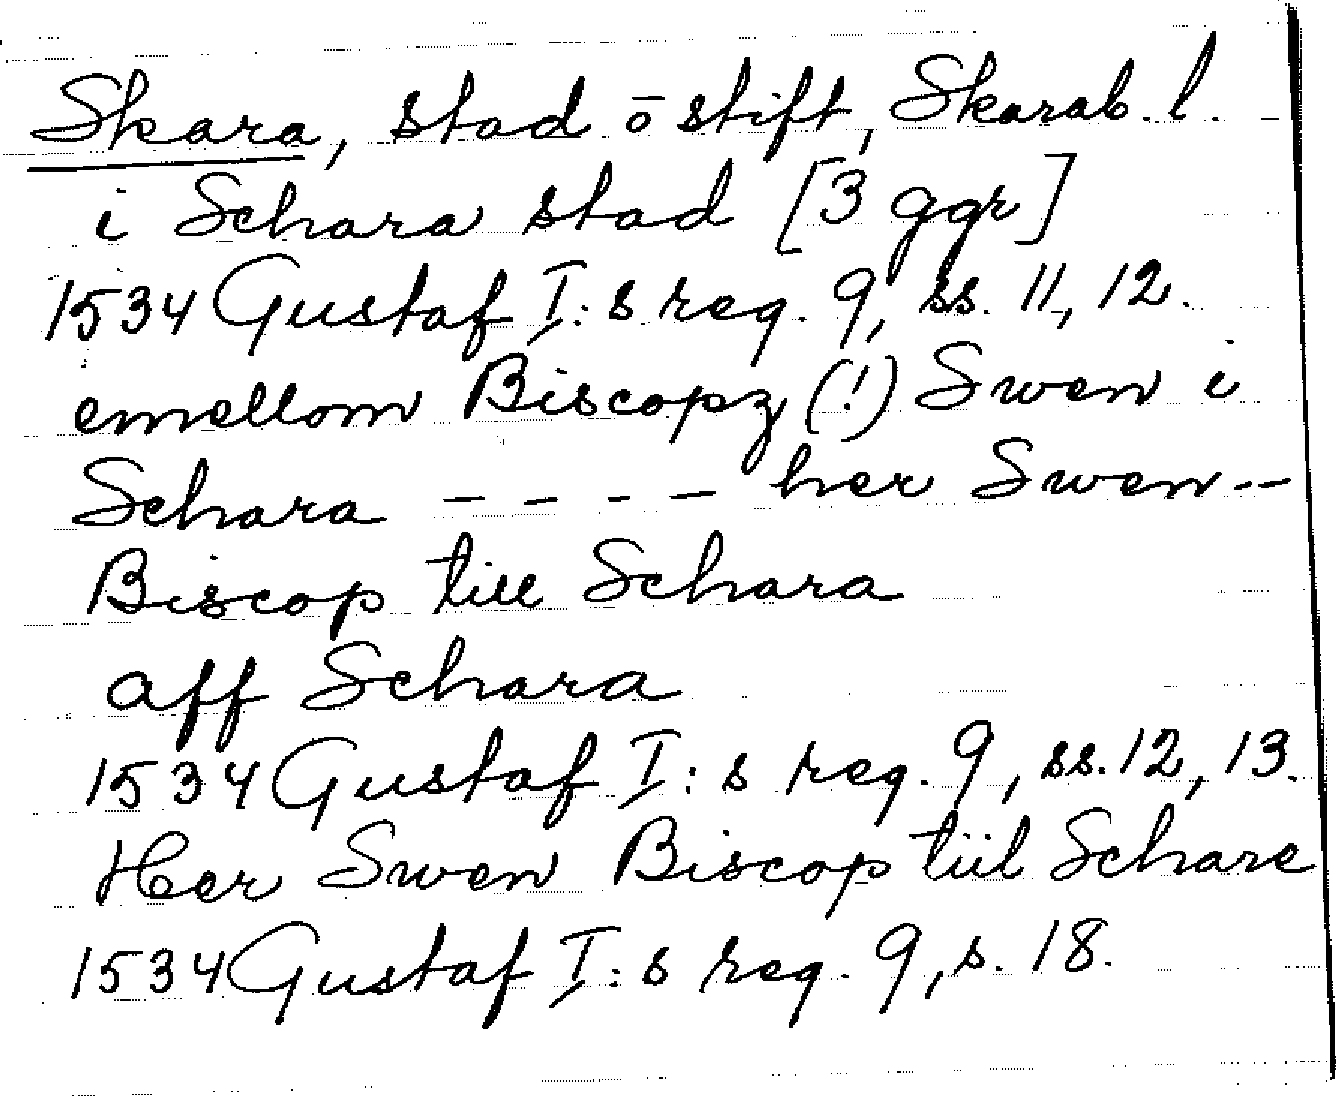 Skara, stad ō stift, Skarab. l.
i Schara stad [3 ggr]
1534 Gustaf I:s reg. 9, ss. 11, 12.
emellom Biscopz (!) Swen i
Schara - - - - her Swen --
Biscop till Schara
aff Schara
1534 Gustaf I:s reg. 9, ss. 12, 13.
Her Swen Biscop tiil Schare
1534 Gustaf I:s reg. 9, s. 18.